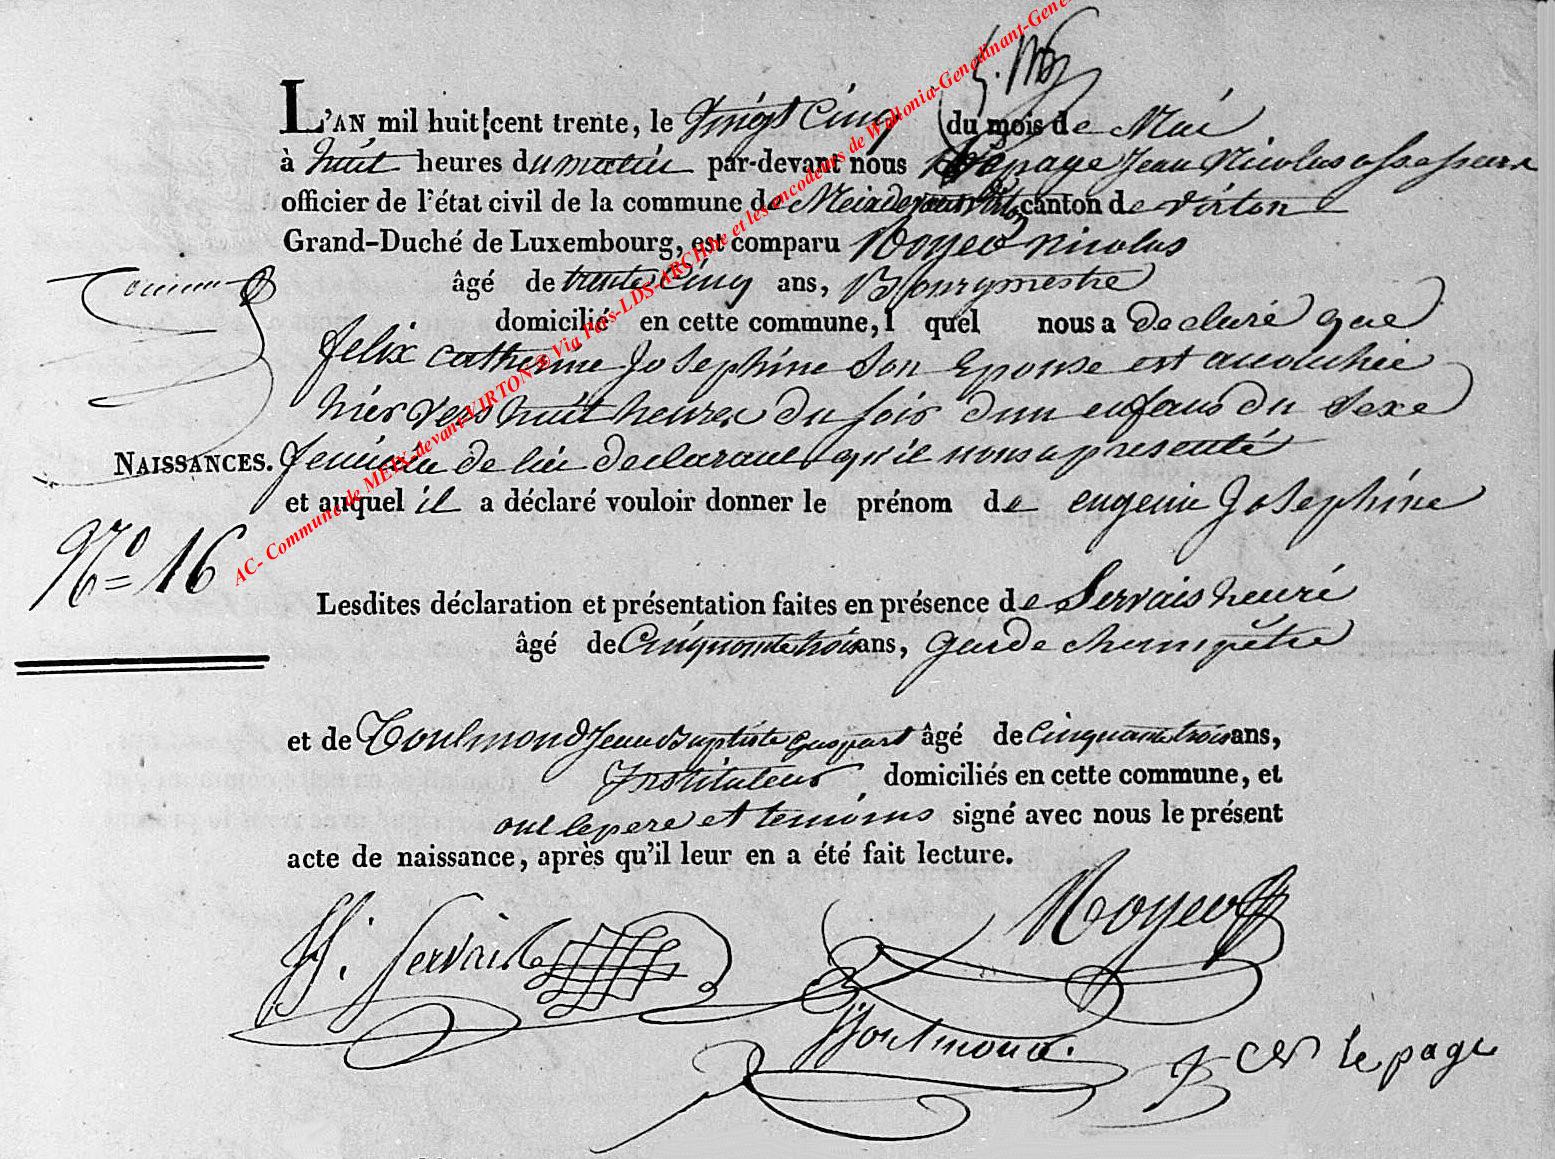 L'AN mil huit cent trente, le vingt Cinq du mois de Mai
à huit heures du matin par-devant nous Lepage Jean Nicolas assesseur
officier de l'état civil de la commune de Meix devant Virton canton de virton
Grand-Duché de Luxembourg, est comparu Noyer nicolas
âgé de trente Cinq ans, Bourgmestre
domicilié en cette commune, l quel nous a declaré que
felix catherine Josephine son Epouse est accouchée
hier vers huit heures du soir dun enfans du Sexe
NAISSANCES. feminin de lui declarant qu'il nous a presenté
et auquel il a déclaré vouloir donner le prénom de eugenie Josephine
N° 16
Lesdites déclaration et présentation faites en présence de Servais henri
âgé de Cinquante trois ans, garde champêtre
et de Toulmond Jean Baptiste Gaspart âgé de Cinquante trois ans,
Instituteur domiciliés en cette commune, et
ont le pere et temoins signé avec nous le présent
acte de naissance, après qu'il leur en a été fait lecture.
H. Servais Noyer
Toulmond. le page
AC- Commune de MEIX-devant-VIRTON ® Via Pars-LDS-ARCH.be et les encodeurs de Wallonia-Genedinant-Gene